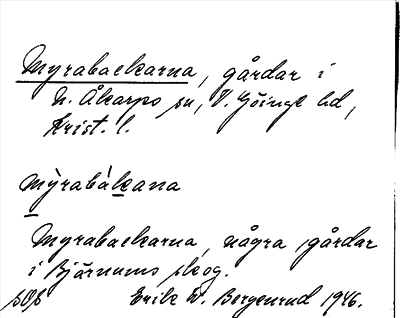 Myrabackarna, gårdar i
N. Åkarps sn, V. Göinge hd,
Krist. l.
mỳrabákana
Myrabackarna, några gårdar
i Bjärnums skog.
Erik W. Bergenrud 1946.